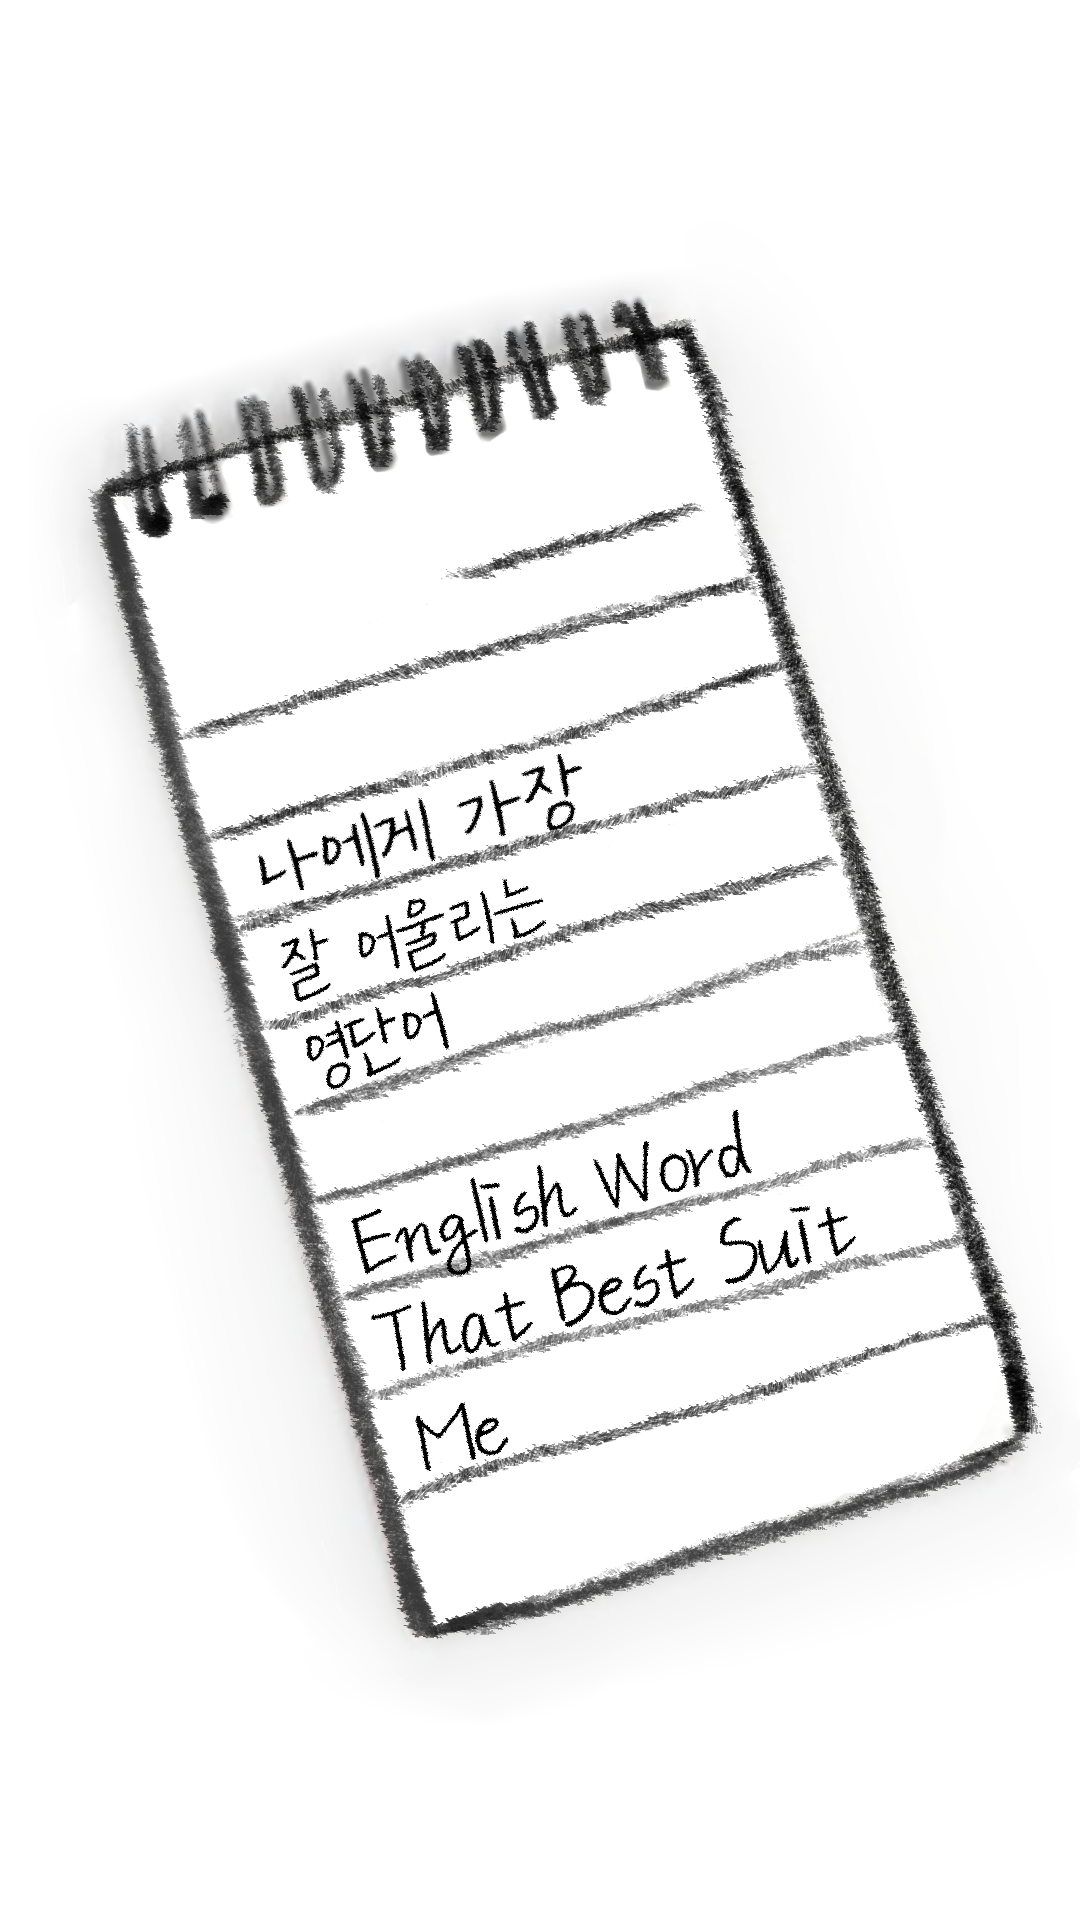 나에게 가장
잘 어울리는
영단어
English Word
That Best Suit
Me